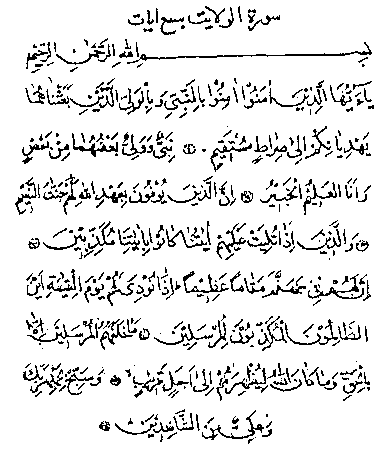 سورة الولايت سبع ايات
بسم الله الرحمن الرحيم
ياءيها الذين امنوا امنوا بالنبي وبالولي الذين بعثناهما
يهديانكم الى صراط مستقيم ۞ نبي وولي بعضهما من بعض
وانا العليم الخبير ۞ ان الذين يوفون بعهد الله لهم جنت النعيم
۞ والذين اذا تليت عليهم ايتنا كانوا باياتنا مكذبين ۞
ان لهم في جهنم مقاما عظيما اذا نودي لهم يوم القيمة اين
الظالمون المكذبون للمرسلين ۞ ما خلفهم المرسلين الا
بالحق وما كان الله ليظهرهم الى اجل قريب ۞ وسبح بحمد ربك
وعلي من الشاهدين ۞